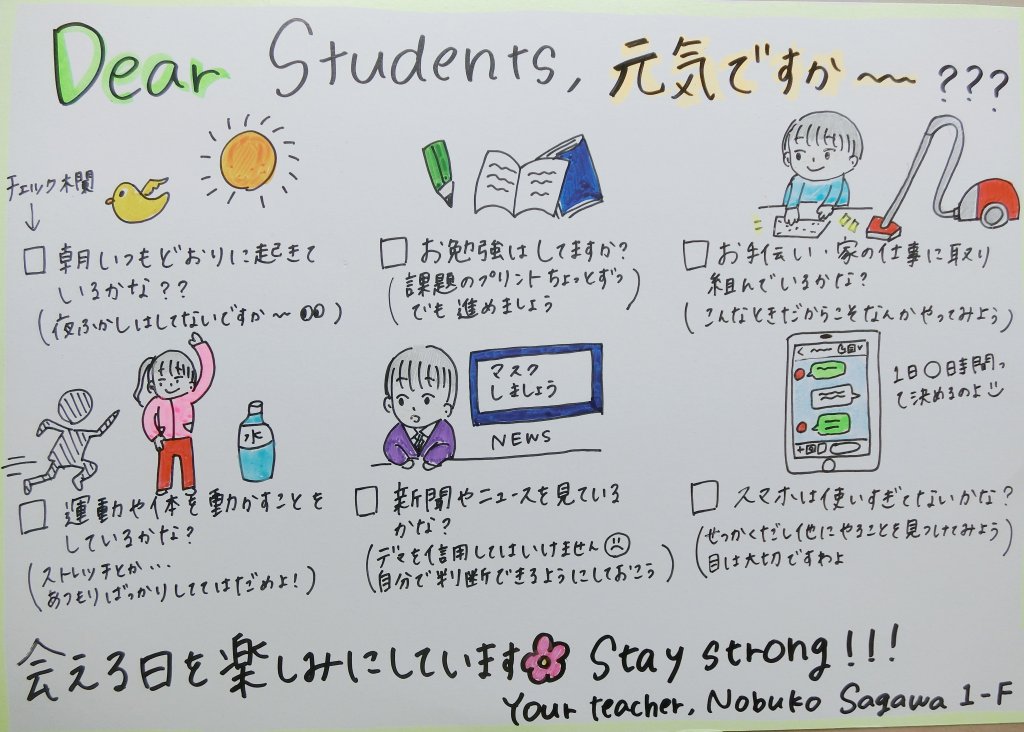 Dear Students, 元気ですか〜〜???
チェック欄
↓
□ 朝いつもどおりに起きて
いるかな??
(夜ふかしはしてないですか〜)
□ お勉強はしてますか?
(課題のプリントちょっとずつ
でも進めましょう)
□ お手伝い・家の仕事に取り
組んでいるかな?
(こんなときだからこそなんかやってみよう)
水
□ 運動や体を動かすことを
しているかな?
(ストレッチとか...
あつもりばっかりしててはだめよ!)
マスク
しましょう
NEWS
□ 新聞やニュースを見ている
かな?
(デマを信用してはいけません
自分で判断できるようにしておこう)
1日〇時間っ
て決めるのよ
□ スマホは使いすぎてないかな?
(せっかくだし他にやることを見つけてみよう
目は大切ですわよ)
会える日を楽しみにしています Stay strong!!!
Your teacher, Nobuko Sagawa 1-F